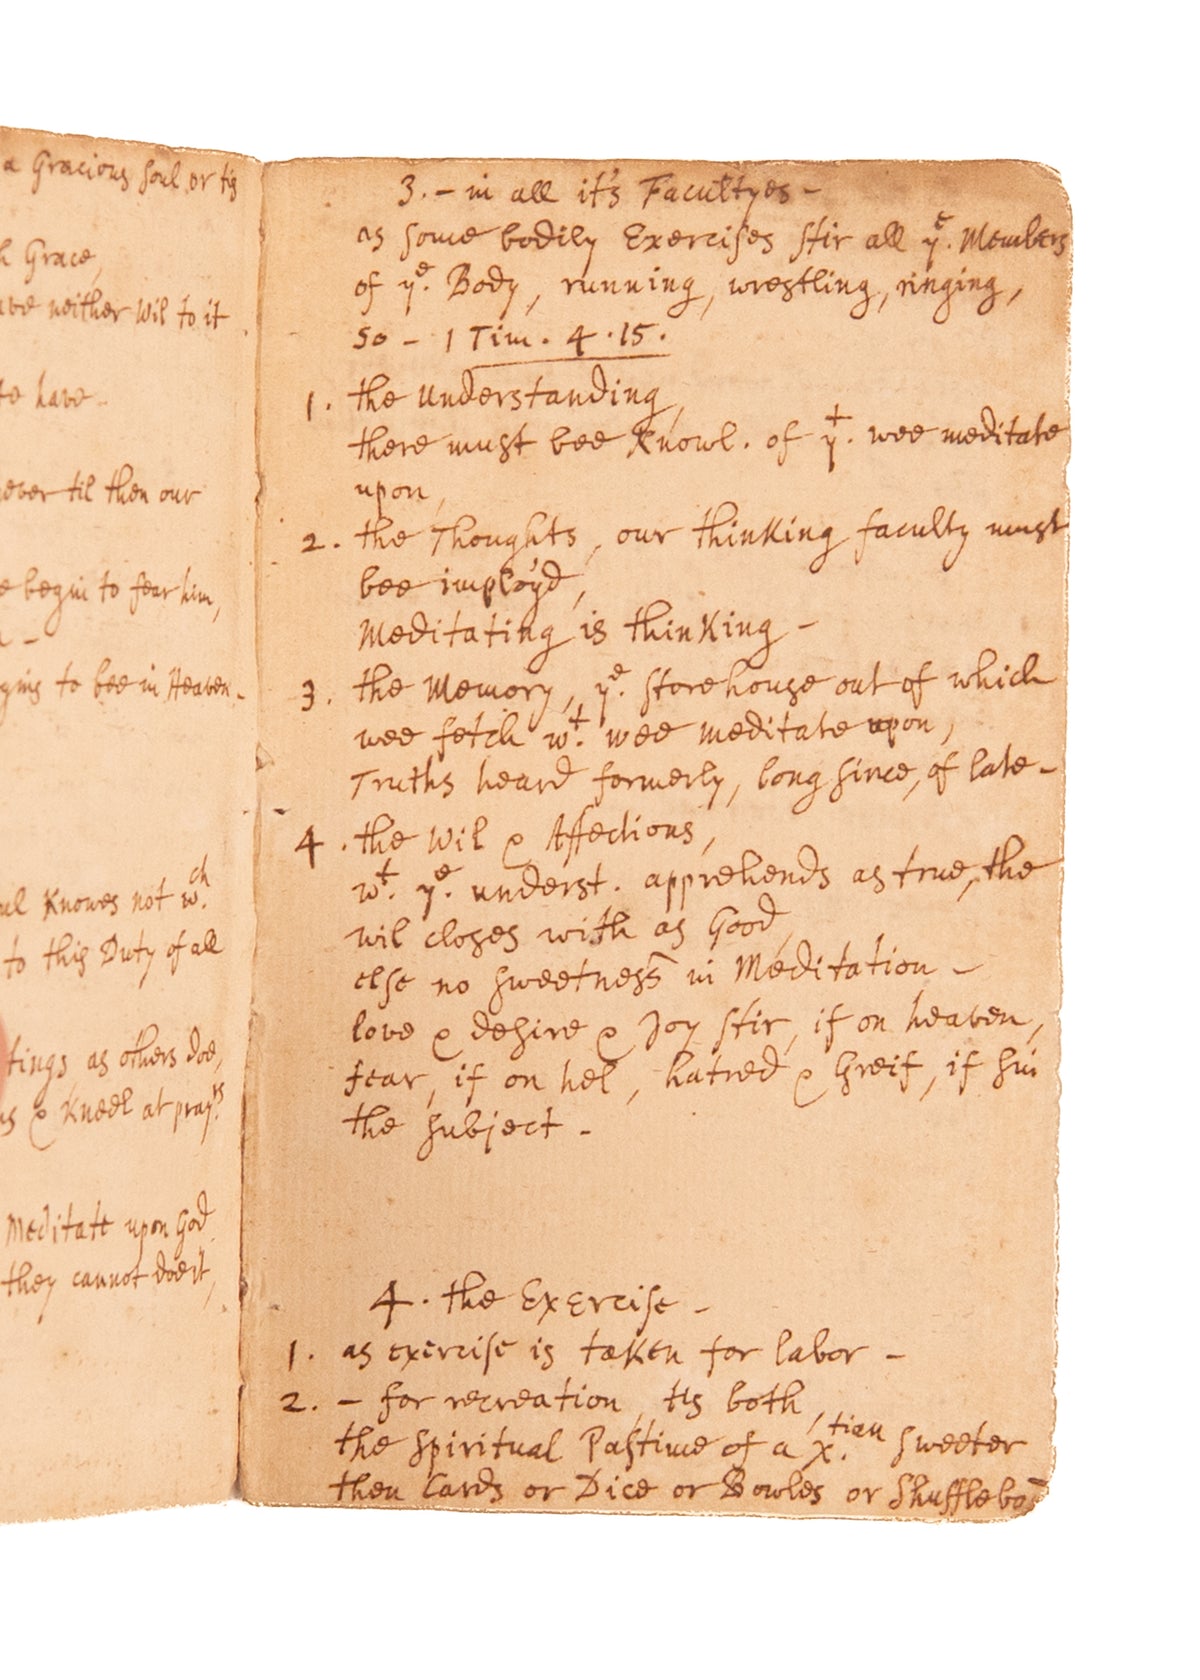 a Gracious Soul, or tis
Grace,
neither Wil to it
have -
til then our
begin to fear him,
-
to bee in Heaven -
Knowes not w.ch
to this Duty of all
as others doe,
& Kneel at pray.rs
Meditate upon God
they cannot doe it,
3. - in all it's Facultyes -
as some bodily Exercises stir all y.e Members
of y.e Body, running, wrestling, ringing,
So - 1 Tim. 4.15.
1. the Understanding,
there must bee Knowl. of y.t wee meditate
upon,
2. the Thoughts, our thinKing faculty must
bee imploy'd,
Meditating is thinKing -
3. the Memory, y.e Storehouse out of which
wee fetch w.t wee meditate upon,
Truths heard formerly, long since, of late -
4. the Wil & Affections,
w.t y.e underst. apprehends as true, the
wil closes with as Good,
else no sweetness in Meditation -
love & desire & Joy stir, if on heaven,
fear, if on hel, hatred & Greif, if sin
the subject -
4. the Exercise -
1. as exercise is taKen for labor -
2. - for recreation, tis both,
the spiritual Pastime of a X.tian sweeter
then Cards or Dice or Bowles or